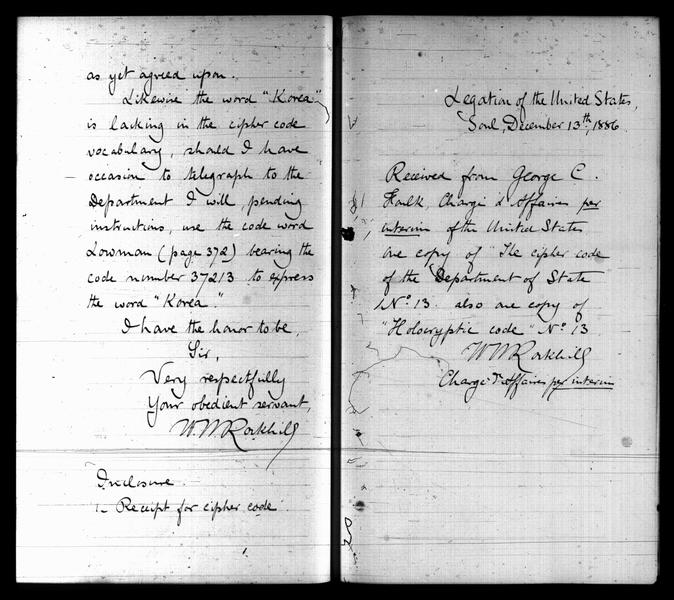 as yet agreed upon.
Likewise the word "Korea"
is lacking in the cipher code
vocabulary, should I have
occasion to telegraph to the
Department I will, pending
instructions, use the code word
Lowman (page 372) bearing the
code number 37213 to express
the word "Korea."
I have the honor to be,
Sir,
Very respectfully
Your obedient servant,
W.W. Rockhill
Inclosure
1- Receipt for cipher code
Legation of the United States,
Soul, December 13th, 1886.
Received from George C.
Foulk Chargé d'Affaires per
interim of the United States
one copy of "The cipher code
of the Department of State
No. 13. also one copy of
"Holocryptic code" No. 13
W W Rockhill
Chargé d'Affaires per interim